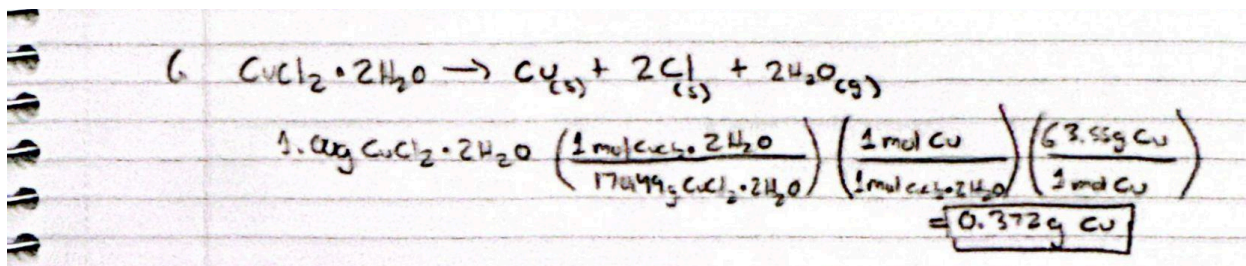 6 CuCl₂ • 2H₂O → Cu(s) + 2Cl(s) + 2H₂O(g)
1.00g CuCl₂ • 2H₂O (1 mol CuCl₂ • 2H₂O / 170.499g CuCl₂ • 2H₂O) (1 mol Cu / 1 mol CuCl₂ • 2H₂O) (63.55g Cu / 1 mol Cu)
= 0.372g Cu